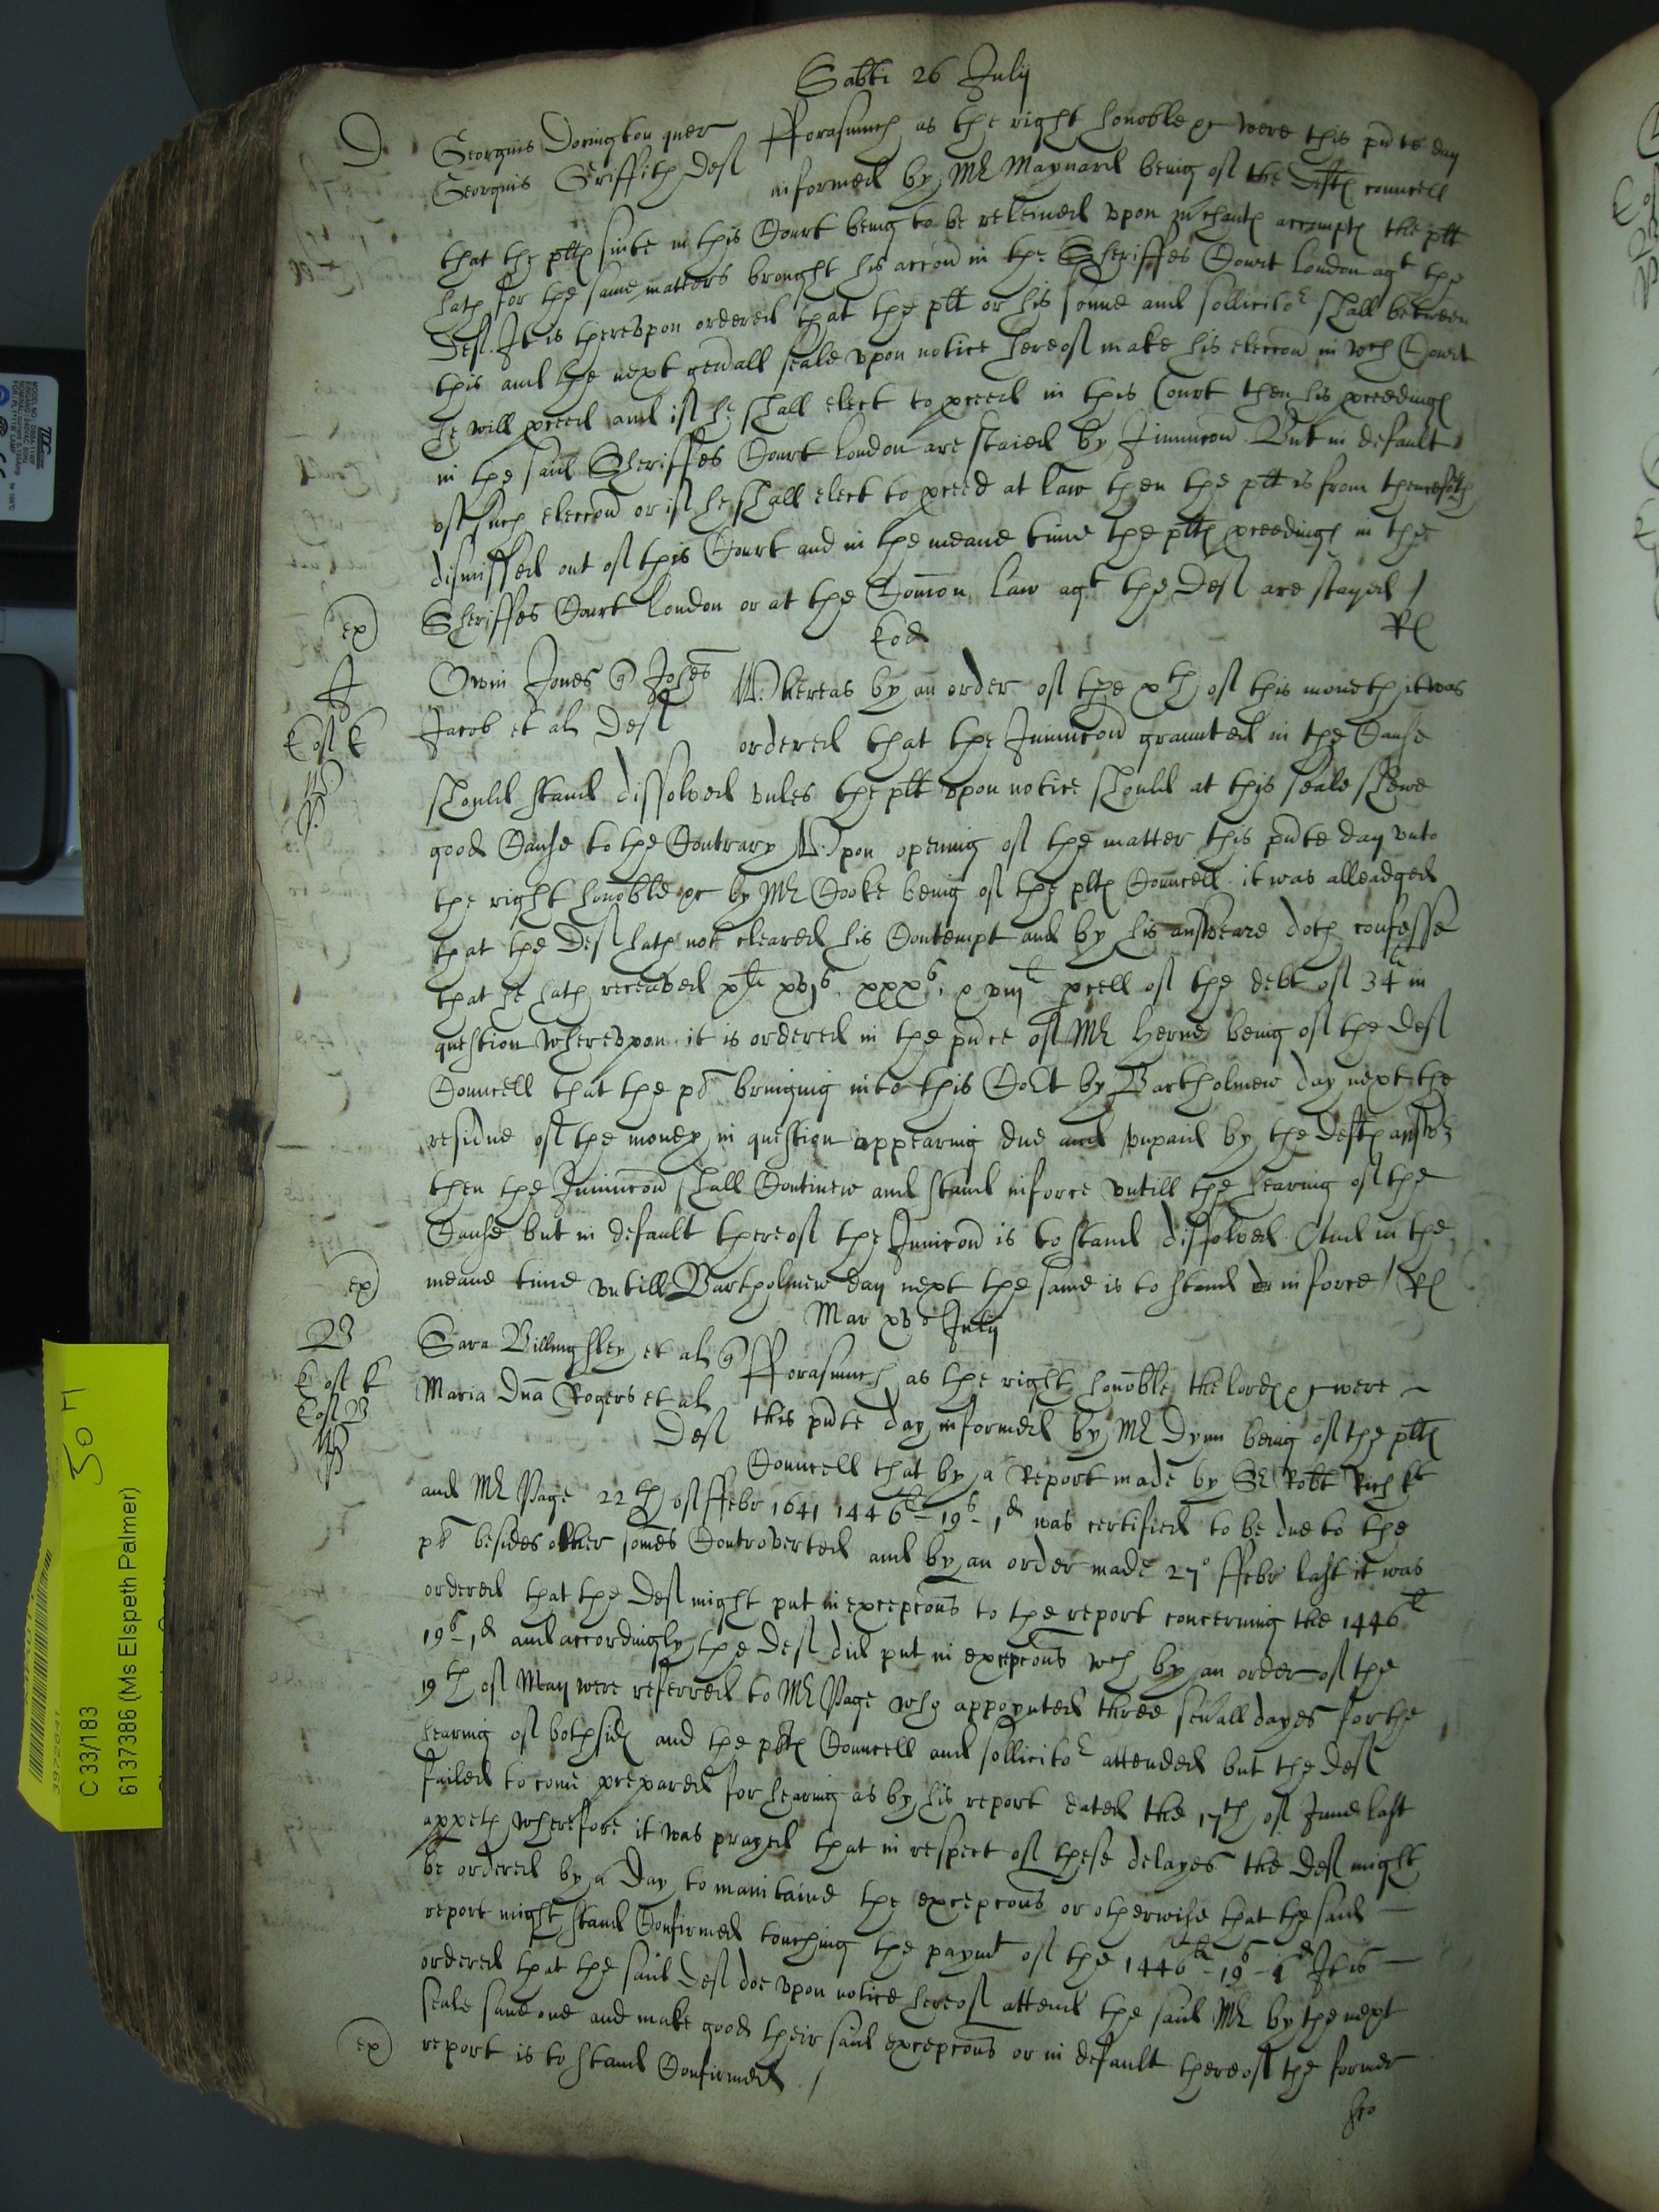 Sabti 26 July
D Georgius Dorington quer Fforasmuch as the right honoble &c were this pnte day
Georgius Griffith Def informed by Mr Maynard being of the Defts councell
that the plts suite in this Court being to be releived vpon mchants accompts the plt
hath for the same matters brought his accon in the Sheriffes Court London agt the
Def. It is therevpon ordered that the plt or his sonne and sollicitor shall between
this and the next genall seale vpon notice hereof make his eleccon in wch Court
he will pceed and if he shall elect to pceed in this Court then his pceedings
in the said Sheriffes Court London are staied by Iniunccon But in default
of such eleccon or if he shall elect to pceed at law then the plt is from thenceforth
dismissed out of this Court and in the meane time the plts pceedings in the
Sheriffes Court London or at the Comon law agt the Def are stayed /
ex
Eod
Rl
J Owin Jones q Johes Whereas by an order of the xth of this moneth it was
Jacob et al Def ordered that the Iniunccon graunted in the Cause
should stand dissolved vnles the plt vpon notice should at this seale shewe
good Cause to the Contrary Vpon opening of the matter this pnte day vnto
the right honoble &c by Mr Cooke being of the plts Councell it was alleadged
that the Def hath not cleared his Contempt and by his answeare doth confesse
that he hath receaved xli xvjs xxxs & viijli pcell of the debt of 34li in
question wherevpon it is ordered in the pnce of Mr Herne being of the Def
Councell that the pl bringing into this Cort by Bartholmew day next the
residue of the money in question appearing due and vnpaid by the Defts answ
then the Iniunccon shall Continew and stand in force vntill the hearing of the
Cause but in default thereof the Iniunccon is to stand dissolved And in the
meane time vntill Bartholmew day next the same is to stand in force / Rl
ex
Mar xv July
B Sara Billingsley et al q Fforasmuch as the right honoble the lords &c were
Maria Dna Rogers et al this pnte day informed by Mr Dynn being of the plts
Def
Councell that by a Report made by Sr Robt Rich kt
and Mr Page 22th of ffebr 1641 1446li - 19s - 1d was certified to be due to the
pl besides other somes Controverted and by an order made 27o ffebr last it was
ordered that the Def might put in excepcons to the report concerning the 1446li
19s - 1d and accordingly the Def did put in excepcons wch by an order of the
19th of May were referred to Mr Page who appoynted three seuall dayes for the
hearing of both sids and the plts Councell and sollicitor attended but the Def
failed to come prepared for hearing as by his report dated the 17th of June last
appeth wherefore it was prayed that in respect of these delayes the Def might
be ordered by a Day to maintaine the excepcons or otherwise that the said
report might stand Confirmed touching the paymt of the 1446li - 19s - 1d It is
ordered that the said Def doe vpon notice hereof attend the said Mr by the next
seale save one and make good their said excepcons or in default thereof the former
ex report is to stand Confirmed /
C 33/183
6137386 (Ms Elspeth Palmer)